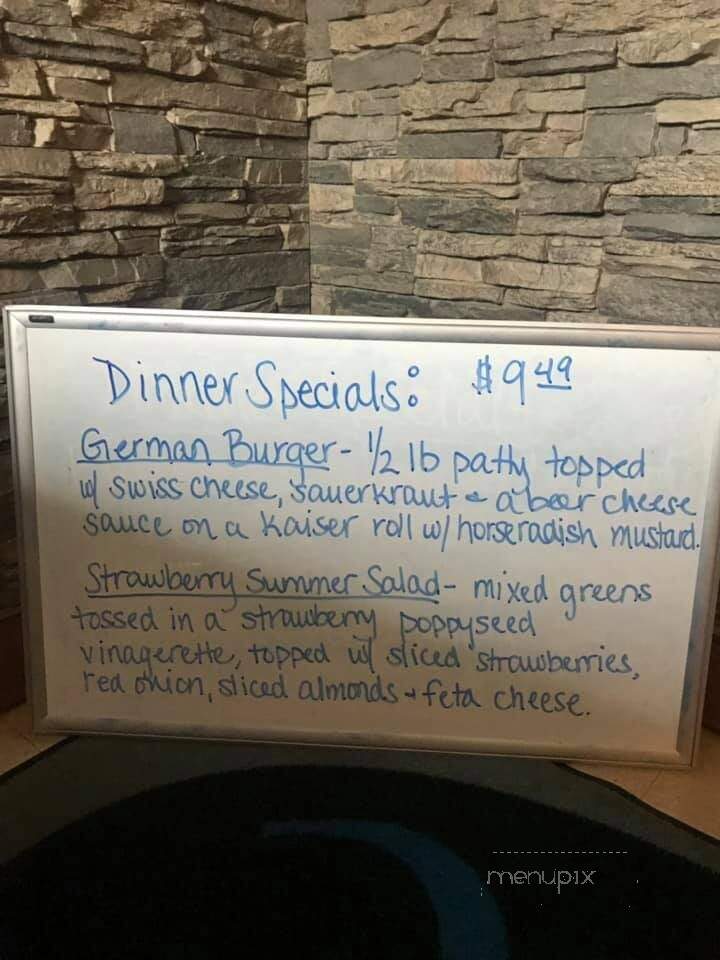 Dinner Specials: $9.49
German Burger- 1/2 lb patty topped
w/ swiss cheese, sauerkraut + a beer cheese
sauce on a kaiser roll w/ horseradish mustard.
Strawberry Summer Salad- mixed greens
tossed in a strawberry poppyseed
vinagerette, topped w/ sliced strawberries,
red onion, sliced almonds + feta cheese.
menupix